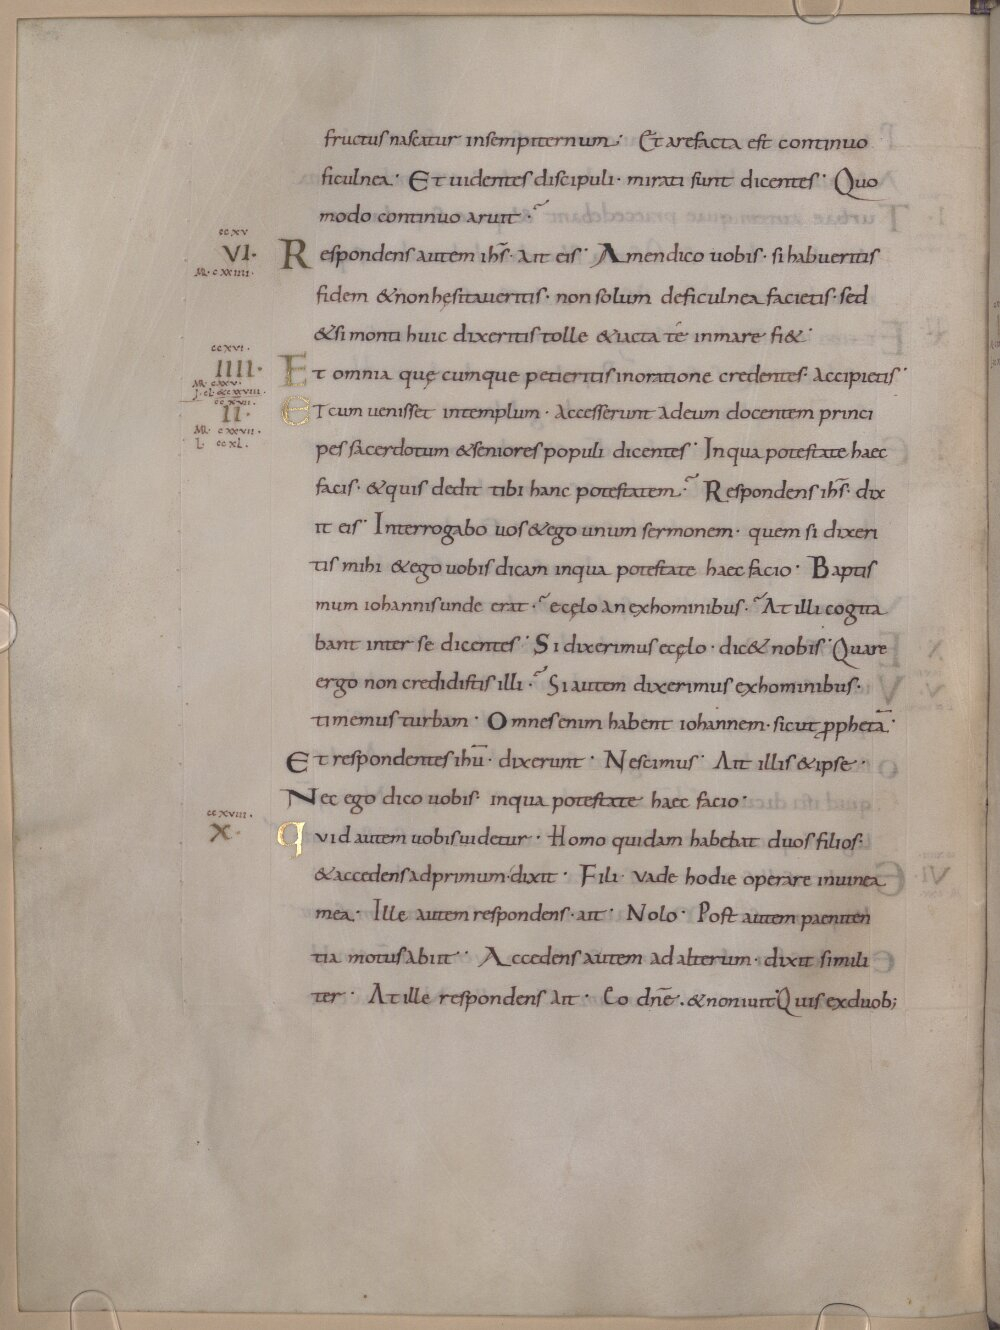 fructus nascatur insempiternum; Et arefacta est continuo
ficulnea· Et uidentes discipuli· mirati sunt dicentes· Quo
modo continuo aruit·
ccxv
VI· Respondens autem ihs· ait eis· Amen dico uobis· si habueritis
MR· cxxiiii·
fidem & non hęsitaueritis· non solum deficulnea facietis· sed
& si monti huic dixeritis tolle & iacta té inmare fi&·
ccxvi·
IIII· Et omnia quę cumque petieritis inoratione credentes· accipietis·
MR· cxxv·
ccxvii·
II· Et cum uenisset intemplum· accesserunt adeum docentem princi
MR· cxxvii·
L· ccxl·
pes sacerdotum & seniores populi dicentes· Inqua potestate haec
facis· & quis dedit tibi hanc potestatem· Respondens ihs· dix
it eis· Interrogabo uos & ego unum sermonem· quem si dixeri
tis mihi & ego uobis dicam inqua potestate haec facio· Baptis
mum iohannis unde erat· ecęlo an exhominibus· At illi cogita
bant inter se dicentes· Si dixerimus ecęlo· dic& nobis· Quare
ergo non credidistis illi· Si autem dixerimus exhominibus·
timemus turbam· Omnes enim habent iohannem· sicut ppheta·
Et respondentes ihu· dixerunt· Nescimus· Ait illis & ipse·
Nec ego dico uobis· inqua potestate haec facio·
ccxviii·
X· Quid autem uobis uidetur· Homo quidam habebat duos filios·
& accedens adprimum· dixit· Fili· vade hodie operare inuinea
mea· Ille autem respondens· ait· Nolo· Post autem paeniten
tia motus abiit· Accedens autem ad alterum· dixit simili
ter· At ille respondens ait· Eo dne· & non iuit· Quis ex duob;